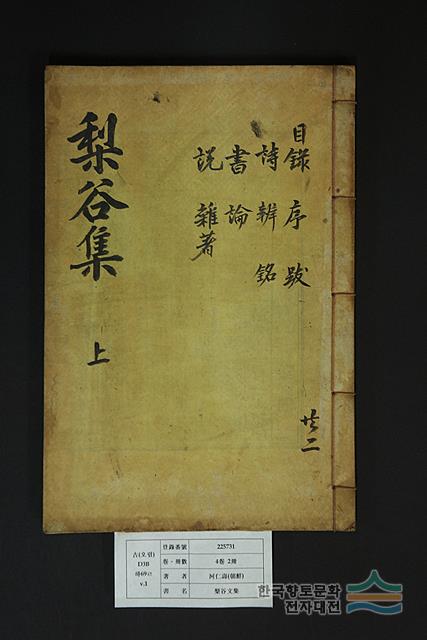 梨谷集 上
目錄 序 跋
詩 辨 銘
書 論
說 雜著
共二
古(오림)
D3B
하69ㄹ
v.1
登錄番號 225731
卷·冊數 4卷 2冊
著者 河仁壽(朝鮮)
書名 梨谷文集
한국향토문화
전자대전